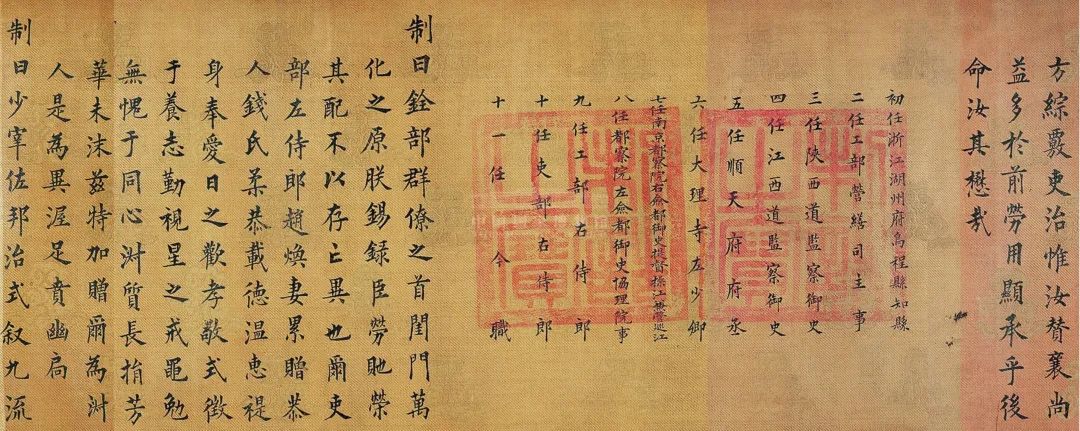 方綜覈吏治惟汝贊襄尚
益多於前勞用顯承乎後
命汝其懋哉
初任浙江湖州府烏程縣知縣
二任工部營繕司主事
三任陝西道監察御史
四任江西道監察御史
五任順天府府丞
六任大理寺左少卿
七任南京都察院右僉都御史提督操江兼管巡江
八任都察院左僉都御史協理院事
九任工部右侍郎
十任吏部右侍郎
十一任今職
制曰銓部群僚之首閨門萬
化之原朕錫録臣勞貤榮
其配不以存亡異也爾吏
部左侍郎趙煥妻累贈恭
人錢氏柔恭載德温惠禔
身奉愛日之歡孝敬式徵
于養志勤視星之戒黽勉
無愧于同心淑質長捐芳
華未沬茲特加贈爾為淑
人是為異渥足賁幽扃
制曰少宰佐邦治式叙九流